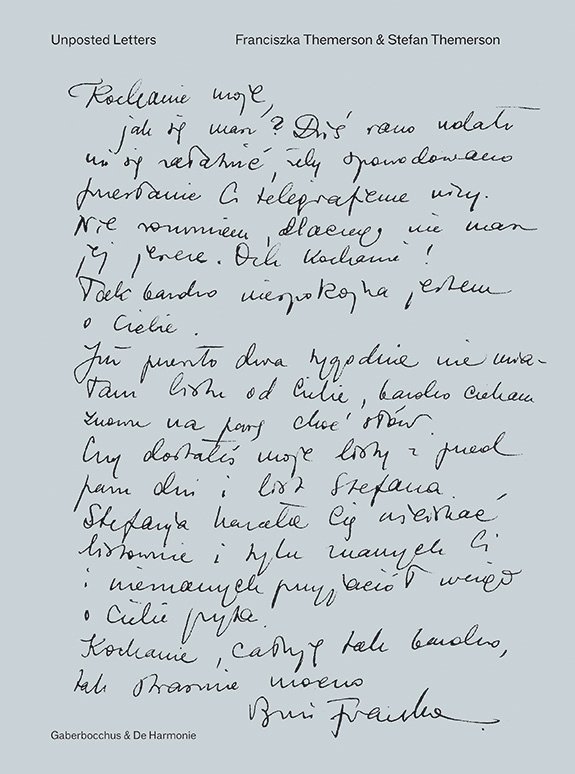 Unposted Letters
Franciszka Themerson & Stefan Themerson
Kochanie moje,
jak się masz? Dziś rano udało
mi się załatwić, żeby spowodowano
przesłanie Ci telegraficzne wizy.
Nie rozumiem, dlaczego nie masz
jej jeszcze. Och Kochanie!
Tak bardzo niespokojna jestem
o Ciebie.
Już przeszło dwa tygodnie nie mia-
łam listu od Ciebie, bardzo czekam
znowu na parę choć słów
Czy dostałeś moje listy z przed
paru dni i list Stefana.
Stefanja kazała Cię uściskać
listownie i tylu znanych Ci
i nieznanych przyjaciół wciąż
o Ciebie pyta.
Kochanie, całuję tak bardzo,
tak strasznie mocno
Franka.
Gaberbocchus & De Harmonie